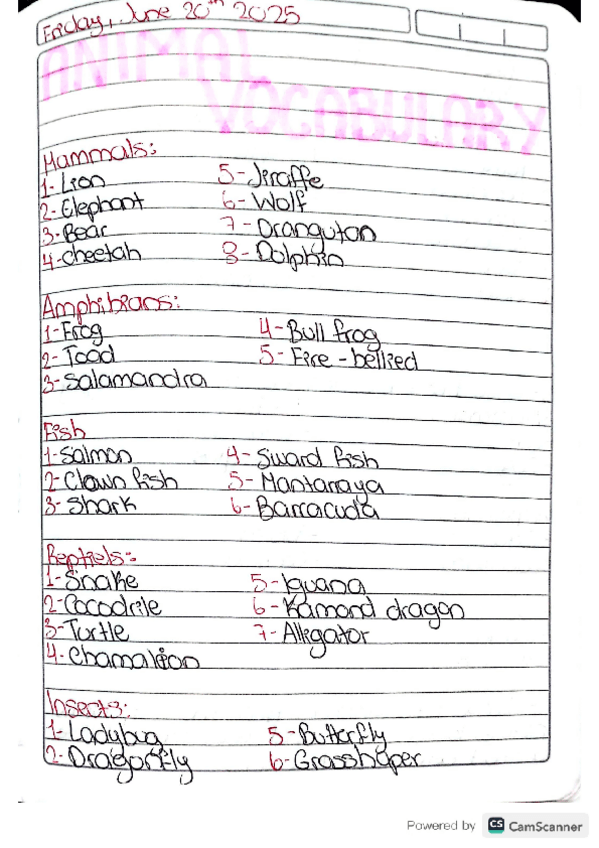 Friday, June 20th 2025
ANIMAL
VOCABULARY
Mammals:
1- Lion 5- Jiraffe
2- Elephant 6- Wolf
3- Bear 7- Orangutan
4- Cheetah 8- Dolphin
Amphibians:
1- Frog 4- Bull frog
2- Toad 5- Fire-bellied
3- Salamandra
Fish
1- Salmon 4- Sward fish
2- Clown fish 5- Mantarraya
3- Shark 6- Barracuda
Reptiels:
1- Snake 5- Iguana
2- Cocodrile 6- Kamond dragon
3- Turtle 7- Alligator
4- Chamaleon
Insects:
1- Ladybug 5- Butterfly
2- Dragonfly 6- Grasshaper
Powered by CS CamScanner